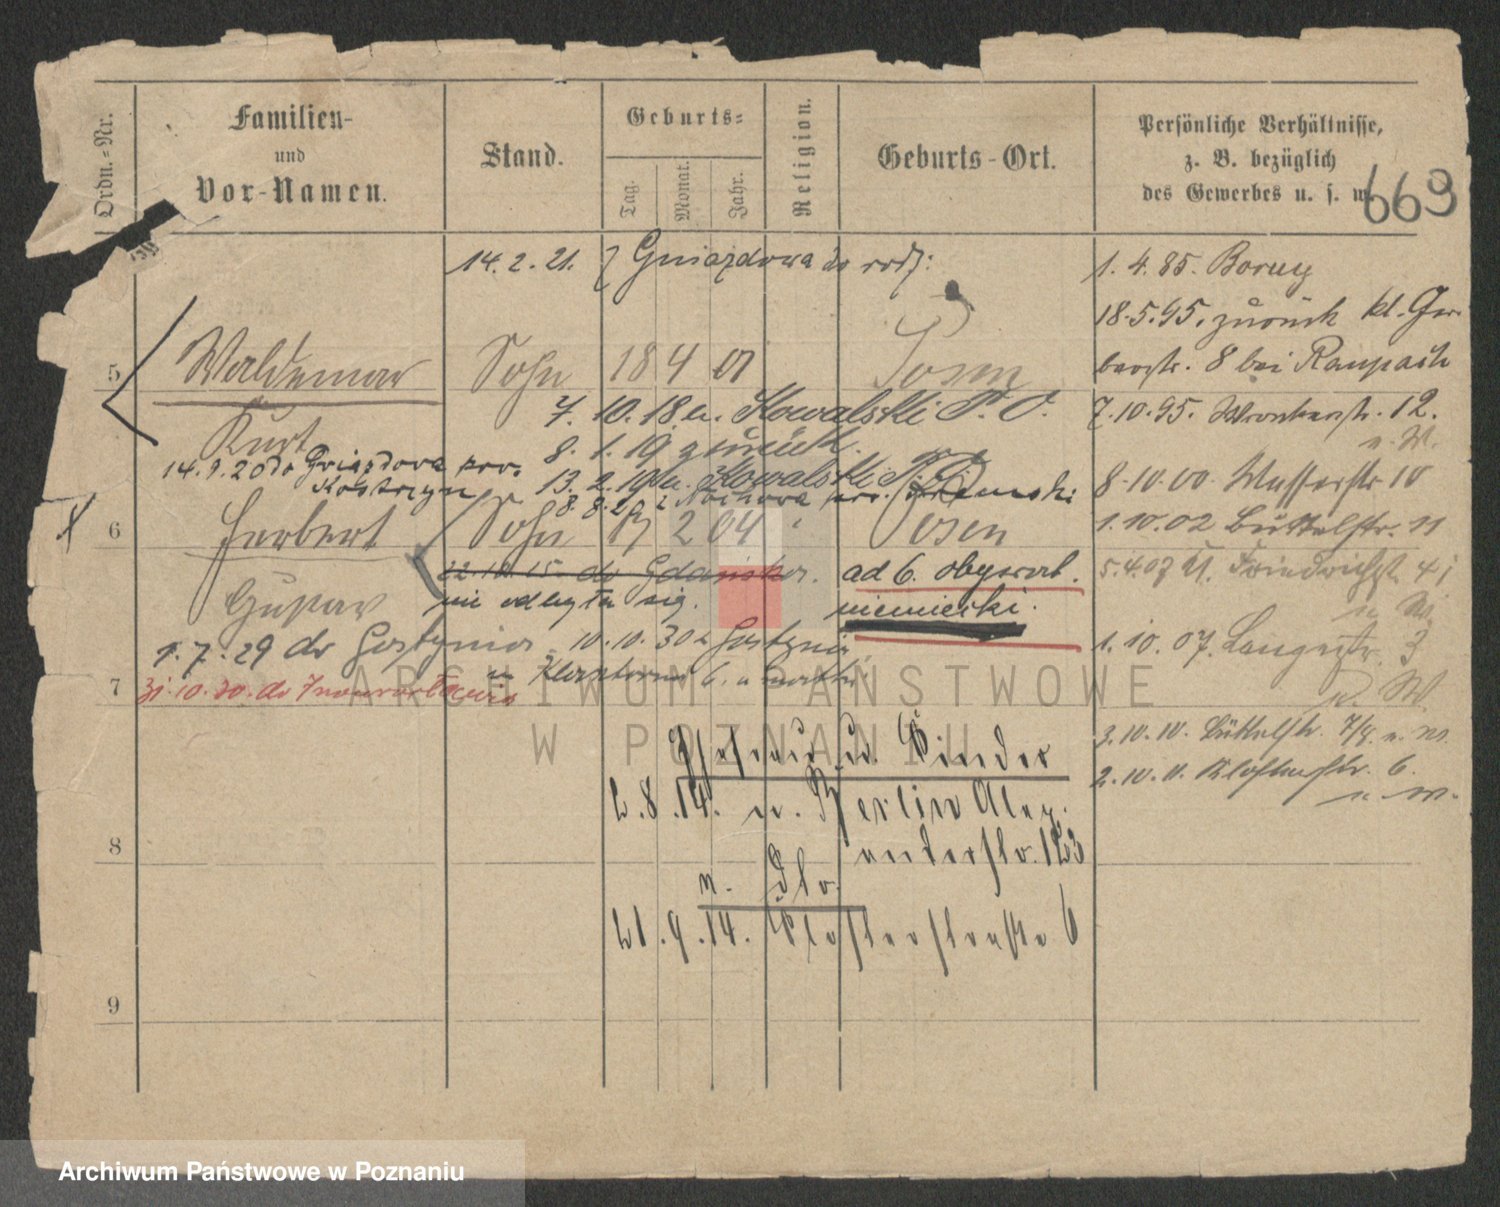 Ordn.-Nr.
Familien-
und
Vor-Namen.
Stand.
Geburts-
Tag.
Monat.
Jahr.
Religion.
Geburts-Ort.
Persönliche Verhältnisse,
z. B. bezüglich
des Gewerbes u. s. w.
669
14.2.21. Gniazdowa do rodz:
1.4.85. Boruy
18.5.95. zurück kl. Ger-
berstr. 8 bei Raupach
5 Waldemar Sohn 18 4 01 Posen
Kurt
7.10.18 n. Kowalski P. O.
8.1.19 zurück.
13.2.19 n. Kowalski
7.10.95. Wronkerstr. 12.
u. W.
14.9.20 do Gniazdowa pow.
Kostrzyn
8.8.21 z
8.10.00. Wasserstr 10
6 Herbert Sohn 19 2 04 Posen
Gustav
1.10.02 Büttelstr. 11
22.10.15. do Gdańska.
nie odbyła się.
ad 6. obywat.
niemiecki.
5.4.07 U. Friedrichstr. 41
u W.
1.7.29 do Gostynia 10.10.30 z Gostynia
u Klasztorna 6. u matki
1.10.07. Langestr. 3
u. W.
7 31.10.30. do Inowrocławia
3.10.10. Büttelstr. 7/8. u. W.
2.10.11. Klosterstr. 6.
u. W.
Ehefrau u. Kinder
2.8.14. n. Berlin Alex-
anderstr. 123
8
n. Dto.
21.9.14. Klosterstraße 6
9
ARCHIWUM PAŃSTWOWE
W POZNANIU
Archiwum Państwowe w Poznaniu